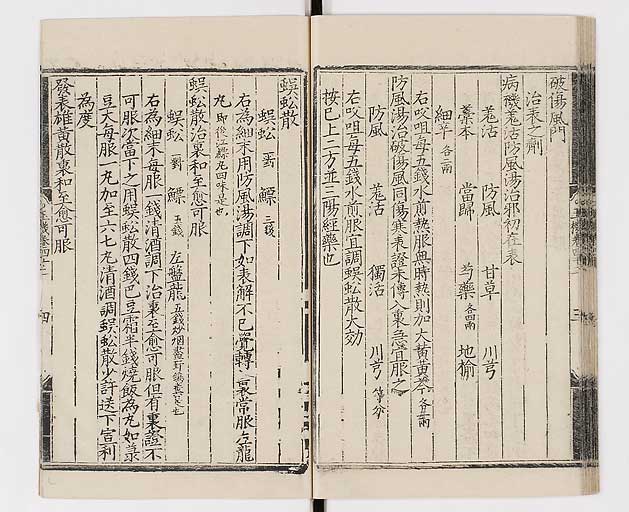 破傷風門
治表之劑
病機羗活防風湯治邪初在表
羗活 防風 甘草 川芎
藁本 當歸 芍藥 各四兩 地榆
細辛 各二兩
右㕮咀每五錢水煎熱服無時熱則加大黃黃芩 各二兩
防風湯治破傷風同傷寒表證未傳入裏急宜服之
防風 羗活 獨活 川芎 等分
右㕮咀每五錢水煎服宜調蜈蚣散大効
按已上二方並三陽經藥也
蜈蚣散
蜈蚣 鰾 三錢
右為細末用防風湯調下如表解不已覺轉裏當服左龍
丸 即後江鰾丸四味是也
蜈蚣散治裏和至愈可服
蜈蚣 鰾 五錢 左盤龍 五錢炒烟盡野鴿糞是也
右為細末每服一錢清酒調下治裏至愈可服但有裏證不
可服次當下之用蜈蚣散四錢巴豆霜半錢燒飯為丸如菉
豆大每服一丸加至六七丸清酒調蜈蚣散少許送下宣利
為度
發表雄黃散裏和至愈可服